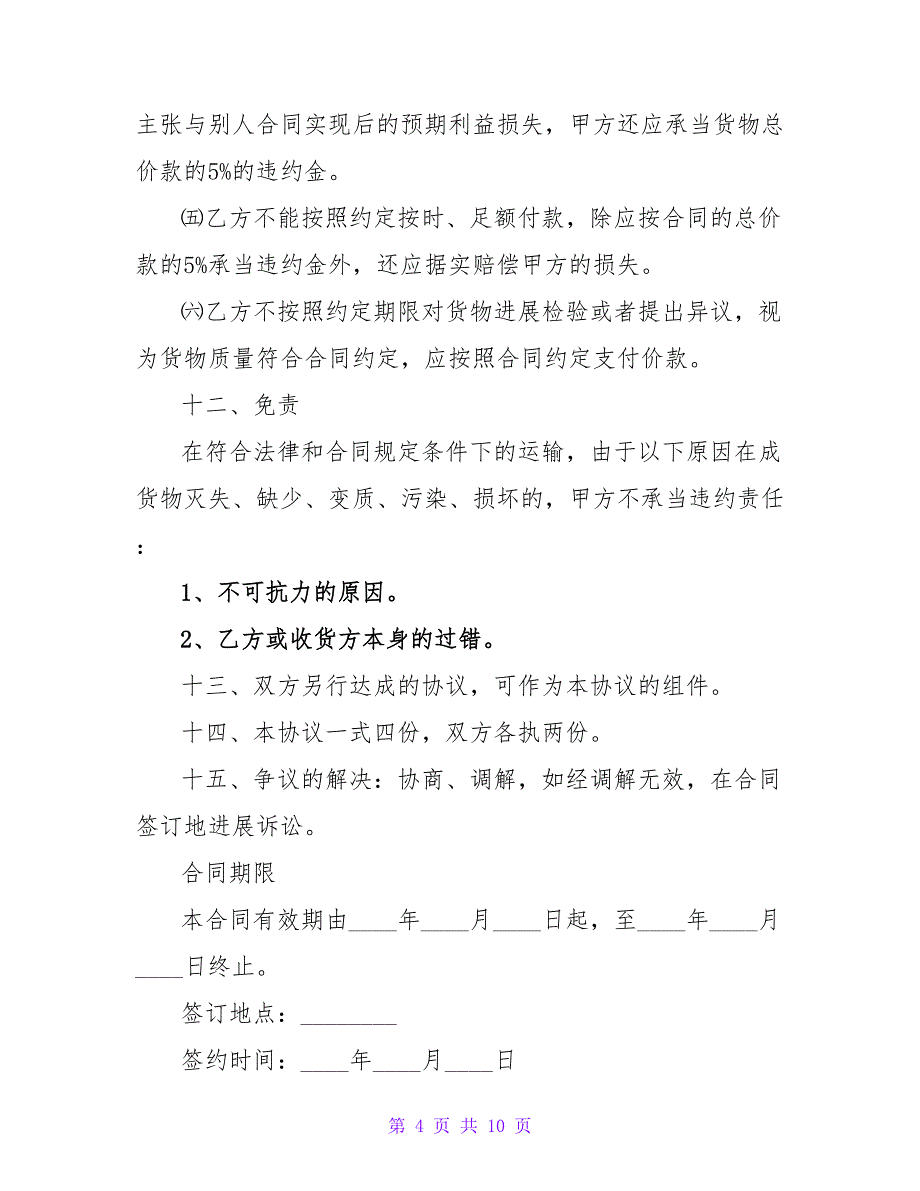 主张与别人合同实现后的预期利益损失，甲方还应承当货物总
价款的5%的违约金。
㈤乙方不能按照约定按时、足额付款，除应按合同的总价
款的5%承当违约金外，还应据实赔偿甲方的损失。
㈥乙方不按照约定期限对货物进展检验或者提出异议，视
为货物质量符合合同约定，应按照合同约定支付价款。
十二、免责
在符合法律和合同规定条件下的运输，由于以下原因在成
货物灭失、缺少、变质、污染、损坏的，甲方不承当违约责任
：
1、不可抗力的原因。
2、乙方或收货方本身的过错。
十三、双方另行达成的协议，可作为本协议的组件。
十四、本协议一式四份，双方各执两份。
十五、争议的解决：协商、调解，如经调解无效，在合同
签订地进展诉讼。
合同期限
本合同有效期由____年____月____日起，至____年____月
____日终止。
签订地点：________
签约时间：____年____月____日
第 4 页 共 10 页